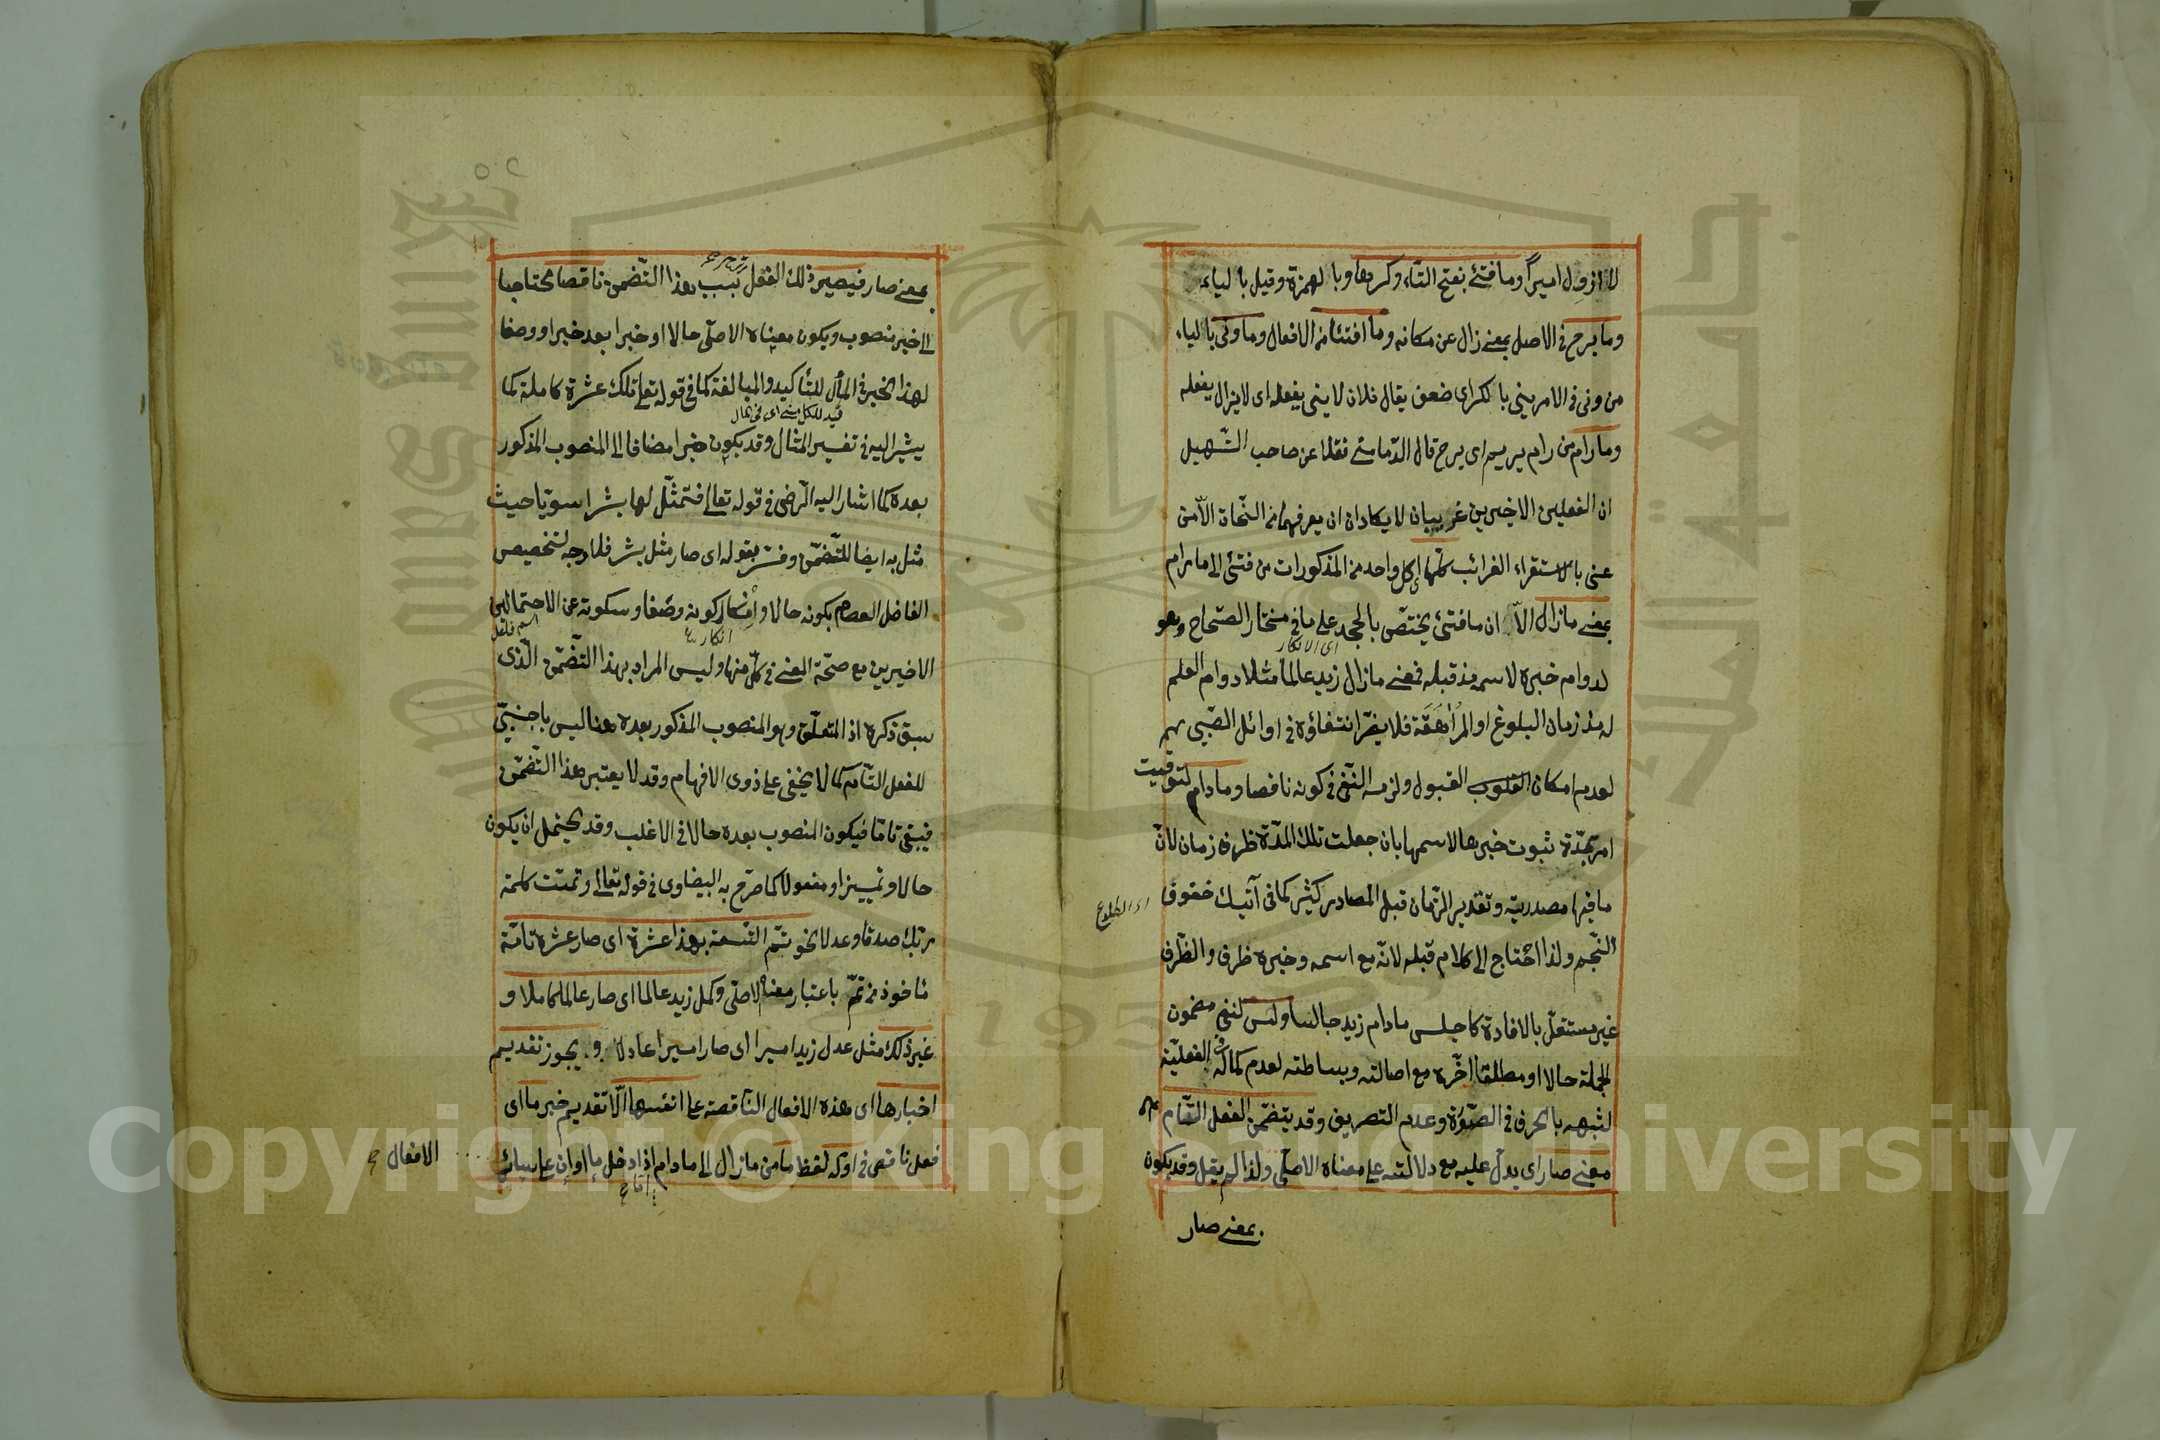 لا ازول اميرا وما فتئ بفتح التاء وكسرها وبالهمزة وقيل بالياء
وما برح في الاصل بمعنى زال عن مكانه وما افتئ من الافعال وما ونى بالياء
من ونى في الامر يني بالكسر اي ضعف يقال فلان لا يني يفعله اي لا يزال يفعله
وما رام من رام يريم اي يبرح قال الدماميني نقلا عن صاحب التسهيل
ان الفعلين الاخيرين غريبان لا يكادان ان يعرفهما من النحاة الا من
عنى بالاستقراء الغرائب كلها اي كل واحد من المذكورات من فتئ الى ما رام
بمعنى ما زال الا ان ما فتئ يختص بالجحد على ما في مختار الصحاح وهو
اي الانكار
لدوام خبره لاسمه مذ قبله فمعنى ما زال زيد عالما مثلا دوام العلم
له مذ زمان البلوغ او المراهقة فلا يضر انتفاؤه في اوائل الصبي
لعدم امكان القبول ولزمه النفي في كونه ناقصا وما دام لتوقيت
امر بمدة ثبوت خبرها لاسمها بان جعلت تلك المدة ظرف زمان لان
ما فيها مصدرية وتقدير الزمان قبل المصادر كثير كما في آتيك خفوق
النجم ولذا احتاج الى كلام قبله لانه مع اسمه وخبره ظرف والظرف
غير مستقل بالافادة كاجلس ما دام زيد جالسا وليس لنفي مضمون
الجملة حالا او مطلقا اخره مع اصالته وبساطته لعدم كماله في الفعلية
لشبهه بالحرف في الصورة وعدم التصريف وقد يتضمن الفعل التام
معنى صار اي يدل عليه مع دلالته على معناه الاصلي ولذا لم يقل وقد يكون
بمعنى صار
بمعنى صار فيصير ذلك الفعل بسبب هذا التضمن ناقصا محتاجا
الى خبر منصوب ويكون معناه الاصلي حالا او خبرا بعد خبر او وصفا
لهذا الخبر في المآل للتأكيد والمبالغة كما في قوله تعالى تلك عشرة كاملة كما
يشير اليه في تفسير المثال وقد يكون خبرا مضافا الى المنصوب المذكور
بعده كما اشار اليه الرضي في قوله تعالى فتمثل لها بشرا سويا حيث
مثل به ايضا للتضمن وفسر بقوله اي صار مثل بشر فلا وجه لتخصيص
الفاضل العصام بكونه حالا وانكار كونه وصفا وسكوته عن الاحتمالين
الاخيرين مع صحة المعنى في كل منها وليس المراد بهذا التضمن الذي
سبق ذكره اذ المتعلق وهو المنصوب المذكور بعده هنا ليس باجنبي
للفعل التام كما لا يخفى على ذوي الافهام وقد لا يعتبر هذا التضمن
فيبقى تاما فيكون المنصوب بعده حالا في الاغلب وقد يحتمل ان يكون
حالا وتمييزا ومفعولا كما صرح به البيضاوي في قوله تعالى وتمت كلمة
ربك صدقا وعدلا نحو تتم التسعة بهذا عشرة اي صار عشرة تامة
مأخوذ من تم باعتبار معناه الاصلي وكمل زيد عالما اي صار عالما كاملا و
غير ذلك مثل عدل زيد اميرا اي صار اميرا عادلا ويجوز تقديم
اخبارها اي هذه الافعال الناقصة على انفسها الا تقديم خبر ما اي
فعل ناقص في اوله لفظ ما من ما زال الى ما دام اذا دخل ما او ان على سائر
الافعال